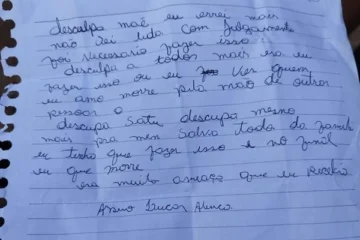 desculpa mãe eu errei mais
não sei lida com julgamento
foi necessario fazer isso
desculpa a todos mais era eu
fazer isso ou eu ver quem
eu amo morre pela mão de outras
pessoas
desculpa mesmo
mais pra mim salva toda da
eu tinho que fazer isso e no final
eu que morre
era muito ameaça que eu
Lucas